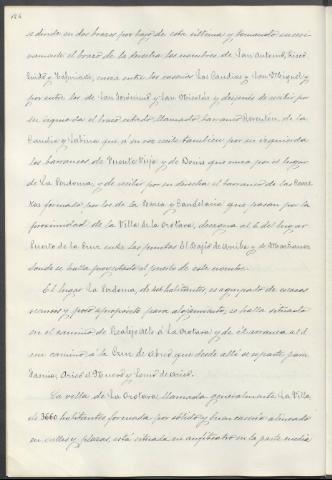 se divide en dos brazos por bajo de esta última y tomando sucesi-
vamente el brazo de la derecha los nombres de San Antonio,
y Tafuriaste, corre entre los caseríos Las Candias y San Miguel y
por entre los de San Jerónimo y San Nicolás y después de recibir por
su izquierda el brazo citado llamado barranco
y Sabina que á su vez recibe tambien por su izquierda
los barrancos de Puerto Viejo y de Doria que nace por el lugar
de La Perdoma, y de recibir por su derecha el barranco de las
formado por los de la y Candelaria que pasan por la
proximidad de la Villa de la Orotava, desagua al O. del lugar
Puerto de la Cruz entre las puntas El Bajío de Arriba y de
donde se halla proyectado el puerto de este nombre.
El lugar La Perdoma, de habitantes, es agrupado de escasos
recursos y, poco apropósito para alojamiento, se halla situado
en el camino de Realejo Alto á La Orotava y de él arranca al S.
un camino á la Cruz de que desde allí se reparte para
Arico el Nuevo y Lomo de Arico.
La villa de La Orotava, llamada generalmente La Villa,
de 3660 habitantes formada por sólido y buen caserío alineado
en calles y plazas, está situada en anfiteatro en la parte media